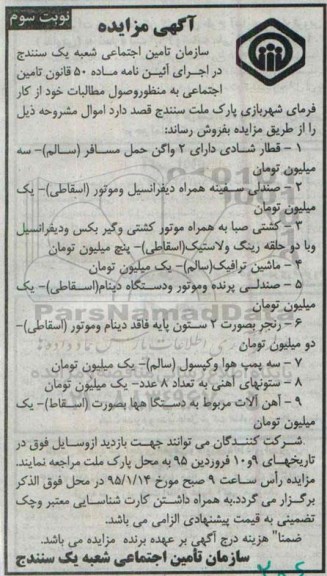 نوبت سوم
آگهی مزایده
سازمان تامین اجتماعی شعبه یک سنندج
در اجرای آئین نامه ماده ۵۰ قانون تامین
اجتماعی به منظوروصول مطالبات خود از کار
فرمای شهربازی پارک ملت سنندج قصد دارد اموال مشروحه ذیل
را از طریق مزایده بفروش رساند:
۱ - قطار شادی دارای ۲ واگن حمل مسافر (سالم)- سه
میلیون تومان
۲ - صندلی سفینه همراه دیفرانسیل وموتور (اسقاطی)- یک
میلیون تومان
۳ - کشتی صبا به همراه موتور کشتی وگیر بکس ودیفرانسیل
وبا دو حلقه رینگ ولاستیک(اسقاطی)- پنج میلیون تومان
۴ - ماشین ترافیک(سالم)- یک میلیون تومان
۵ - صندلی پرنده وموتور ودستگاه دینام(اسقاطی)- یک
میلیون تومان
۶ - رنجر بصورت ۲ ستون پایه فاقد دینام وموتور (اسقاطی)-
دو میلیون تومان
۷ - سه پمپ هوا وکپسول (سالم)- یک میلیون تومان
۸ - ستونهای آهنی به تعداد ۸ عدد- یک میلیون تومان
۹ - آهن آلات مربوط به دستگا هها بصورت (اسقاط)- یک
میلیون تومان
.شرکت کنندگان می توانند جهت بازدید ازوسایل فوق در
تاریخهای ۹و۱۰ فروردین ۹۵ به محل پارک ملت مراجعه نمایند.
مزایده رأس ساعت ۹ صبح مورخ ۹۵/۱/۱۴ در محل فوق الذکر
برگزار می گردد.به همراه داشتن کارت شناسایی معتبر وچک
تضمینی به قیمت پیشنهادی الزامی می باشد.
ضمنا" هزینه درج آگهی بر عهده برنده مزایده می باشد.
سازمان تأمین اجتماعی شعبه یک سنندج
ParsNamadData